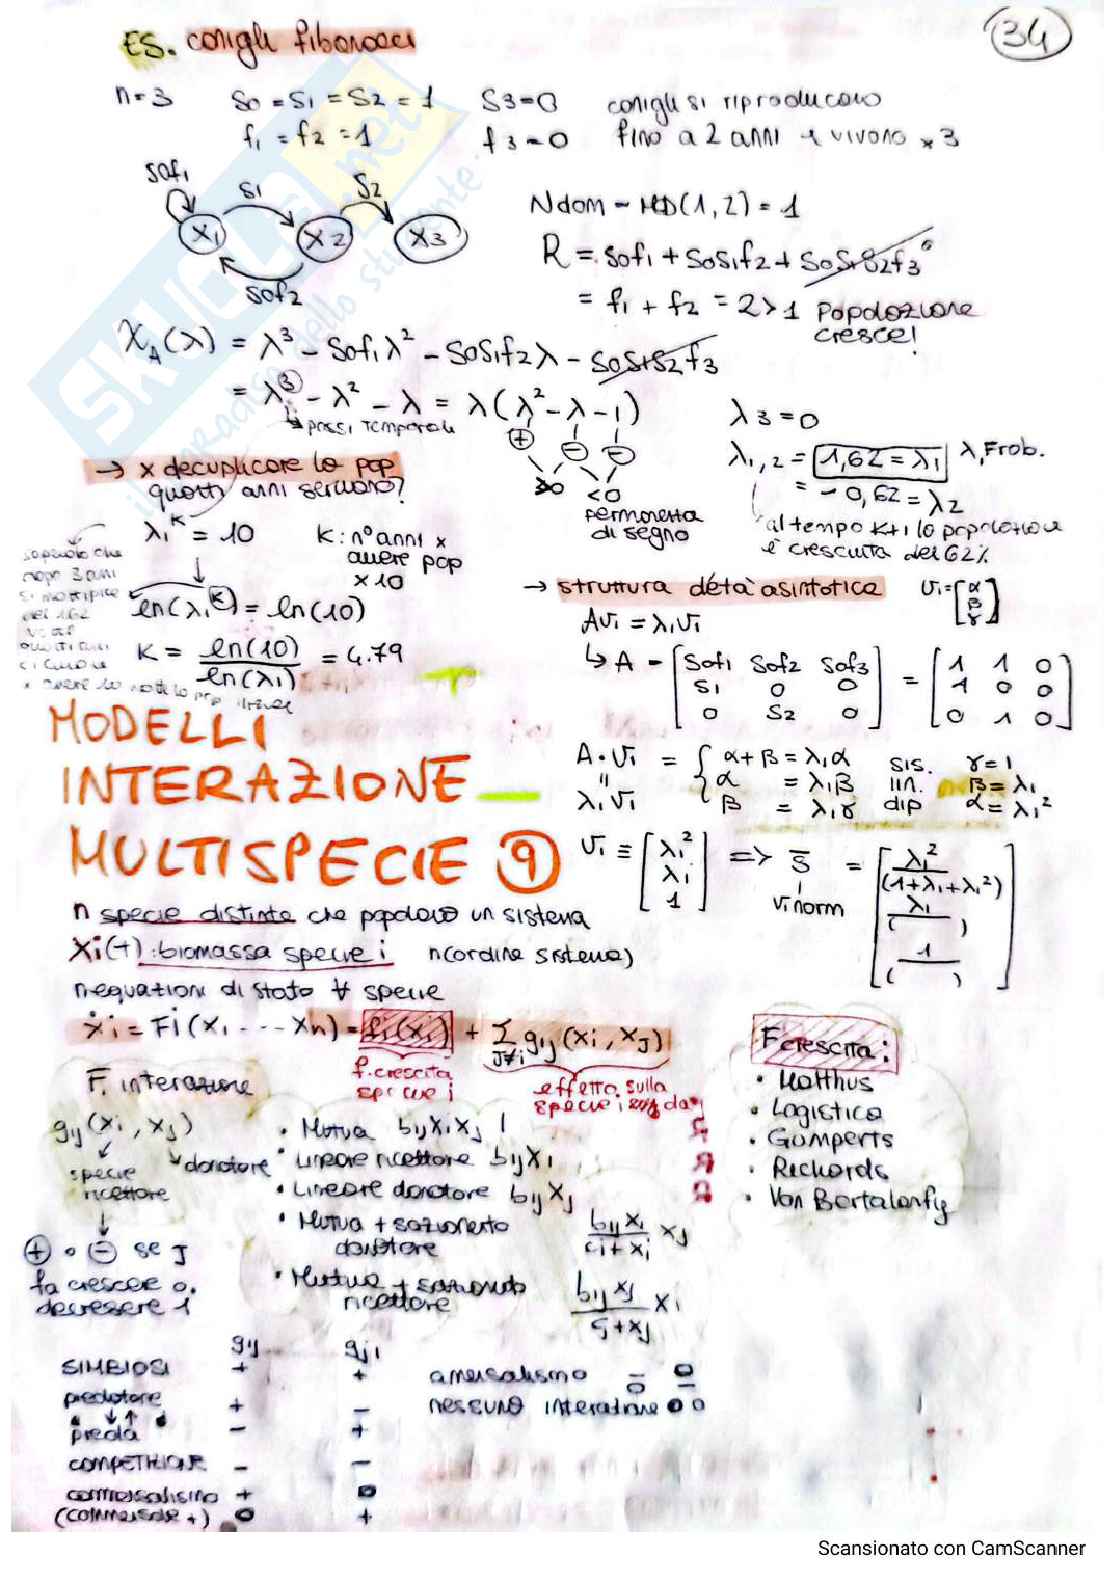 ES. conigli fibonacci
34
n=3 S0 = S1 = S2 = 1 S3=0 conigli si riproducono
f1 = f2 = 1 f3=0 fino a 2 anni e vivono x 3
S0f1 S1 S2
X1 X2 X3
S0f2
Ndom = MCD(1,2) = 1
R = S0f1 + S0S1f2 + S0S1S2f3 0
= f1 + f2 = 2 > 1 popolazione
cresce!
χA(λ) = λ³ - S0f1λ² - S0S1f2λ - S0S1S2f3
= λ³ - λ² - λ = λ(λ² - λ - 1)
↳ passi temporali
+ - -
>0 <0
permanenza
di segno
λ3 = 0
λ1,2 = 1,62 = λ1 λ Frob.
= -0,62 = λ2
al tempo K+1 la popolazione
è cresciuta del 62%
→ x decuplicare la pop
quanti anni servono?
λ1^K = 10 K: n° anni x
avere pop
x10
sapendo che
dopo 3 anni
si moltiplica
del 1.62
ln(λ1^K) = ln(10)
K = ln(10)/ln(λ1) = 4.79
→ struttura d'età asintotica V1 = [α β γ]
AV1 = λ1V1
↳ A = [S0f1 S0f2 S0f3 = [1 1 0
S1 0 0 1 0 0
0 S2 0] 0 1 0]
A·V1 = { α+β = λ1α sis. γ=1
" α = λ1β lin. β=λ1
λ1V1 β = λ1γ dip α=λ1²
V1 ≡ [λ1² λ1 1] => S = [λ1²/(1+λ1+λ1²) λ1/( ) 1/( )]
V1 norm
MODELLI
INTERAZIONE
MULTISPECIE 9
n specie distinte che popolano un sistema
Xi(t): biomassa specie i n(ordine sistema)
n equazioni di stato ∀ specie
ẋi = Fi(X1 --- Xn) = fi(xi) + Σ j≠i gij(xi, xj)
f. crescita
specie i
effetto sulla
specie i da j
F. crescita:
• Malthus
• Logistica
• Gomperts
• Richards
• Von Bertalanfy
F. interazione
gij(xi, xj)
specie
ricettore
donatore
+ o - se J
fa crescere o
decrescere i
• Mutua bijxixj
• Lineare ricettore bijxi
• Lineare donatore bijxj
• Mutua + saturamento
donatore bijxi/ci+xi xj
• Mutua + saturamento
ricettore bijxj/cj+xj xi
gij gji
SIMBIOSI + +
predatore + -
preda - +
COMPETIZIONE - -
commensalismo + 0
(commensale +) 0 +
amensalismo - 0
0 -
nessuna interazione 0 0
Scansionato con CamScanner
SKUOLA.net
il paradiso dello studente